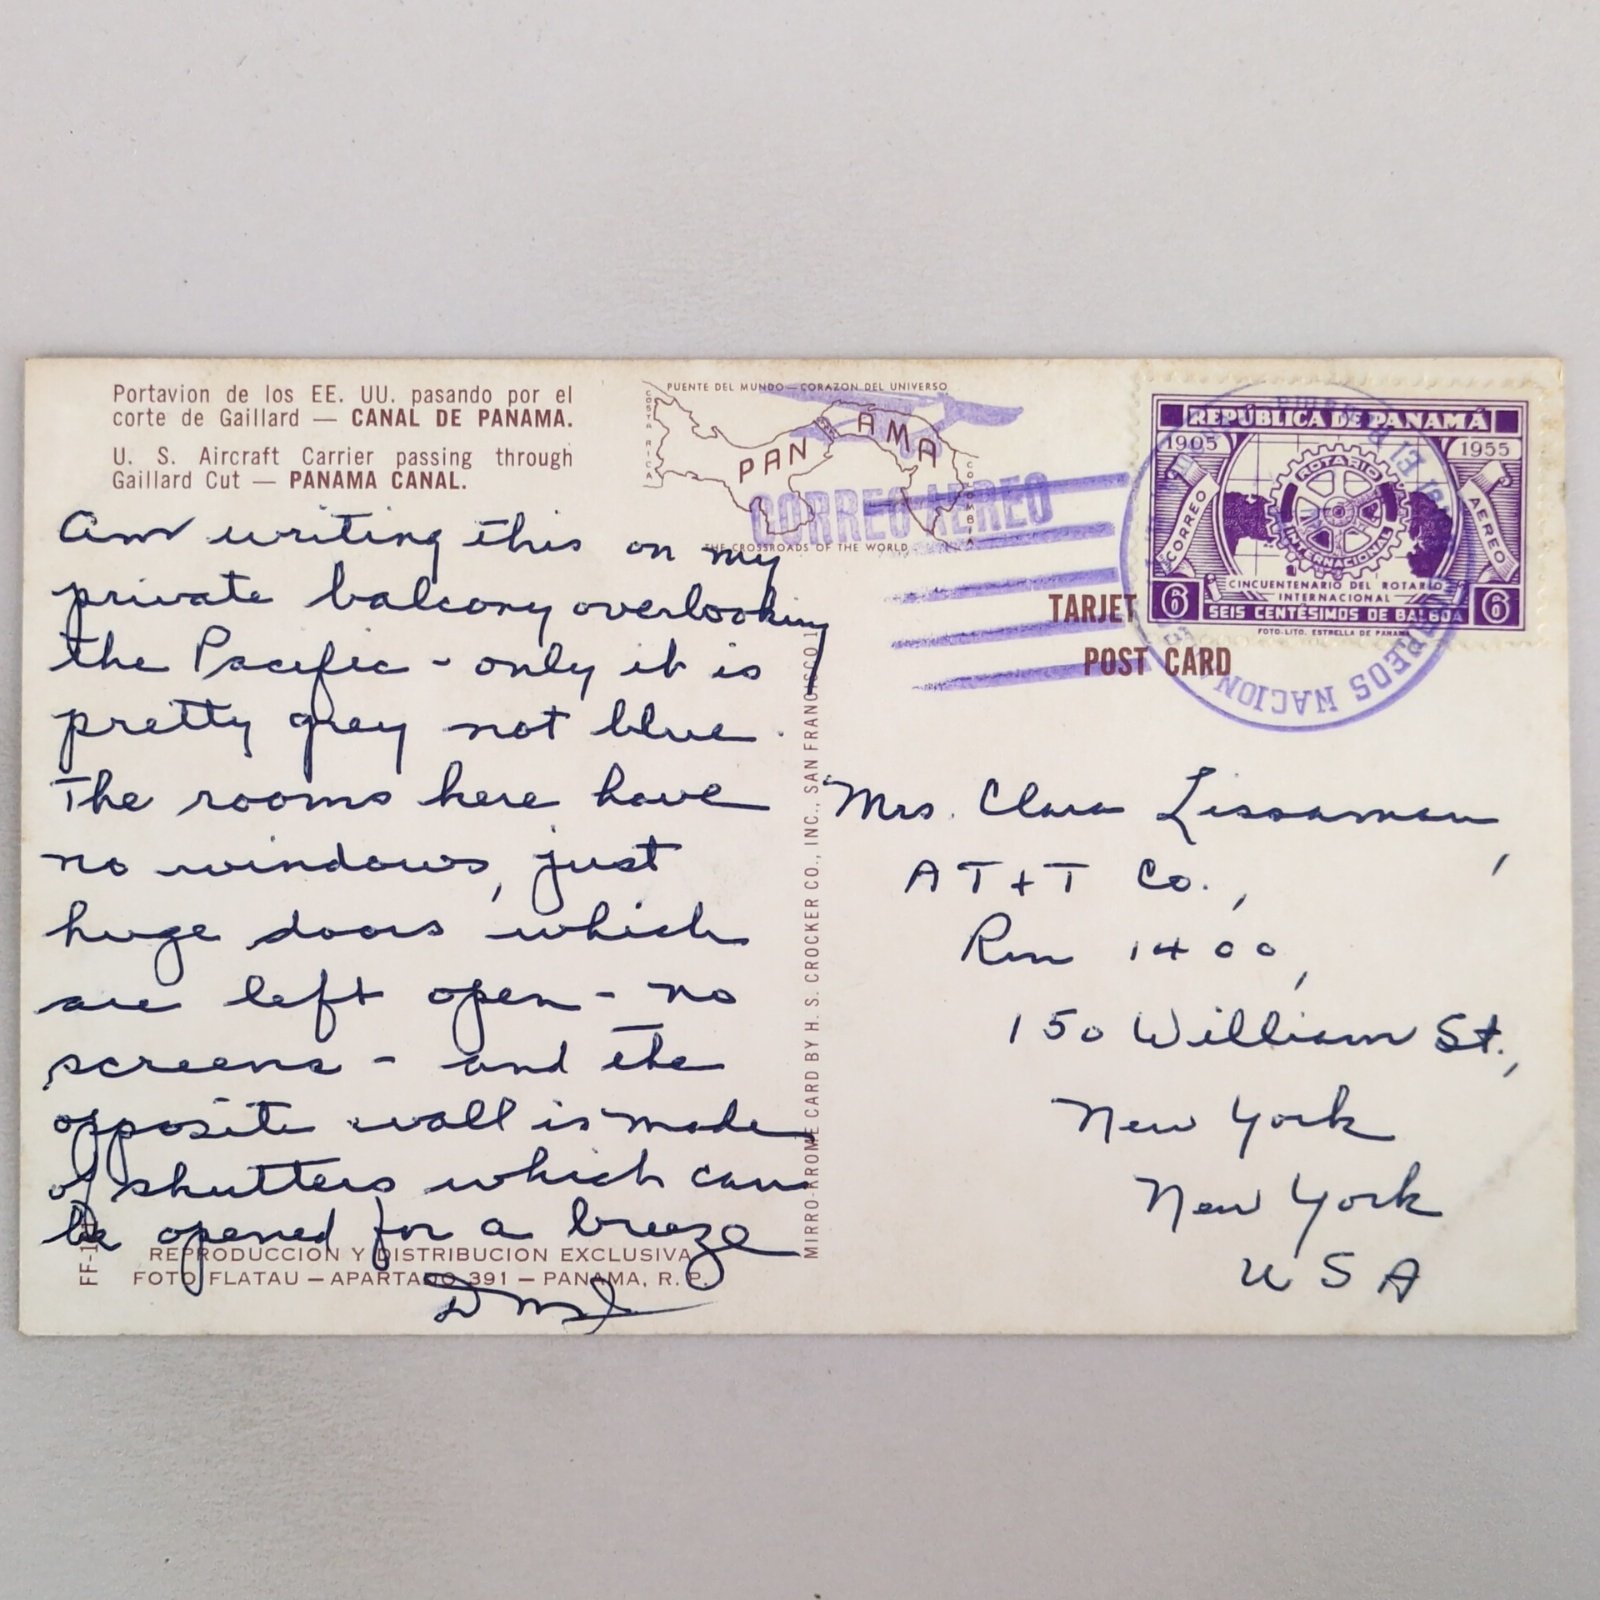 Portavion de los EE. UU. pasando por el
corte de Gaillard — CANAL DE PANAMA.
U. S. Aircraft Carrier passing through
Gaillard Cut — PANAMA CANAL.
Am writing this on my
private balcony overlooking
the Pacific - only it is
pretty grey not blue.
The rooms here have
no windows, just
huge doors which
are left open - no
screens - and the
opposite wall is made
of shutters which can
be opened for a breeze
REPRODUCCION Y DISTRIBUCION EXCLUSIVA
FOTO FLATAU — APARTADO 391 — PANAMA, R. P.
PUENTE DEL MUNDO — CORAZON DEL UNIVERSO
COSTA RICA
PANAMA
COLOMBIA
THE CROSSROADS OF THE WORLD
CORREO AEREO
MIRRO-KROME CARD BY H. S. CROCKER CO., INC., SAN FRANCISCO
REPÚBLICA DE PANAMÁ
1905 1955
CORREO AEREO
ROTARIO
INTERNACIONAL
CINCUENTENARIO DEL ROTARIO
INTERNACIONAL
6 SEIS CENTÉSIMOS DE BALBOA 6
FOTO-LITO. ESTRELLA DE PANAMA
TARJET
POST CARD
CORREOS NACION
Mrs. Clara Lissaman,
AT+T Co.,
Rm 1400,
150 William St.,
New York
New York
USA